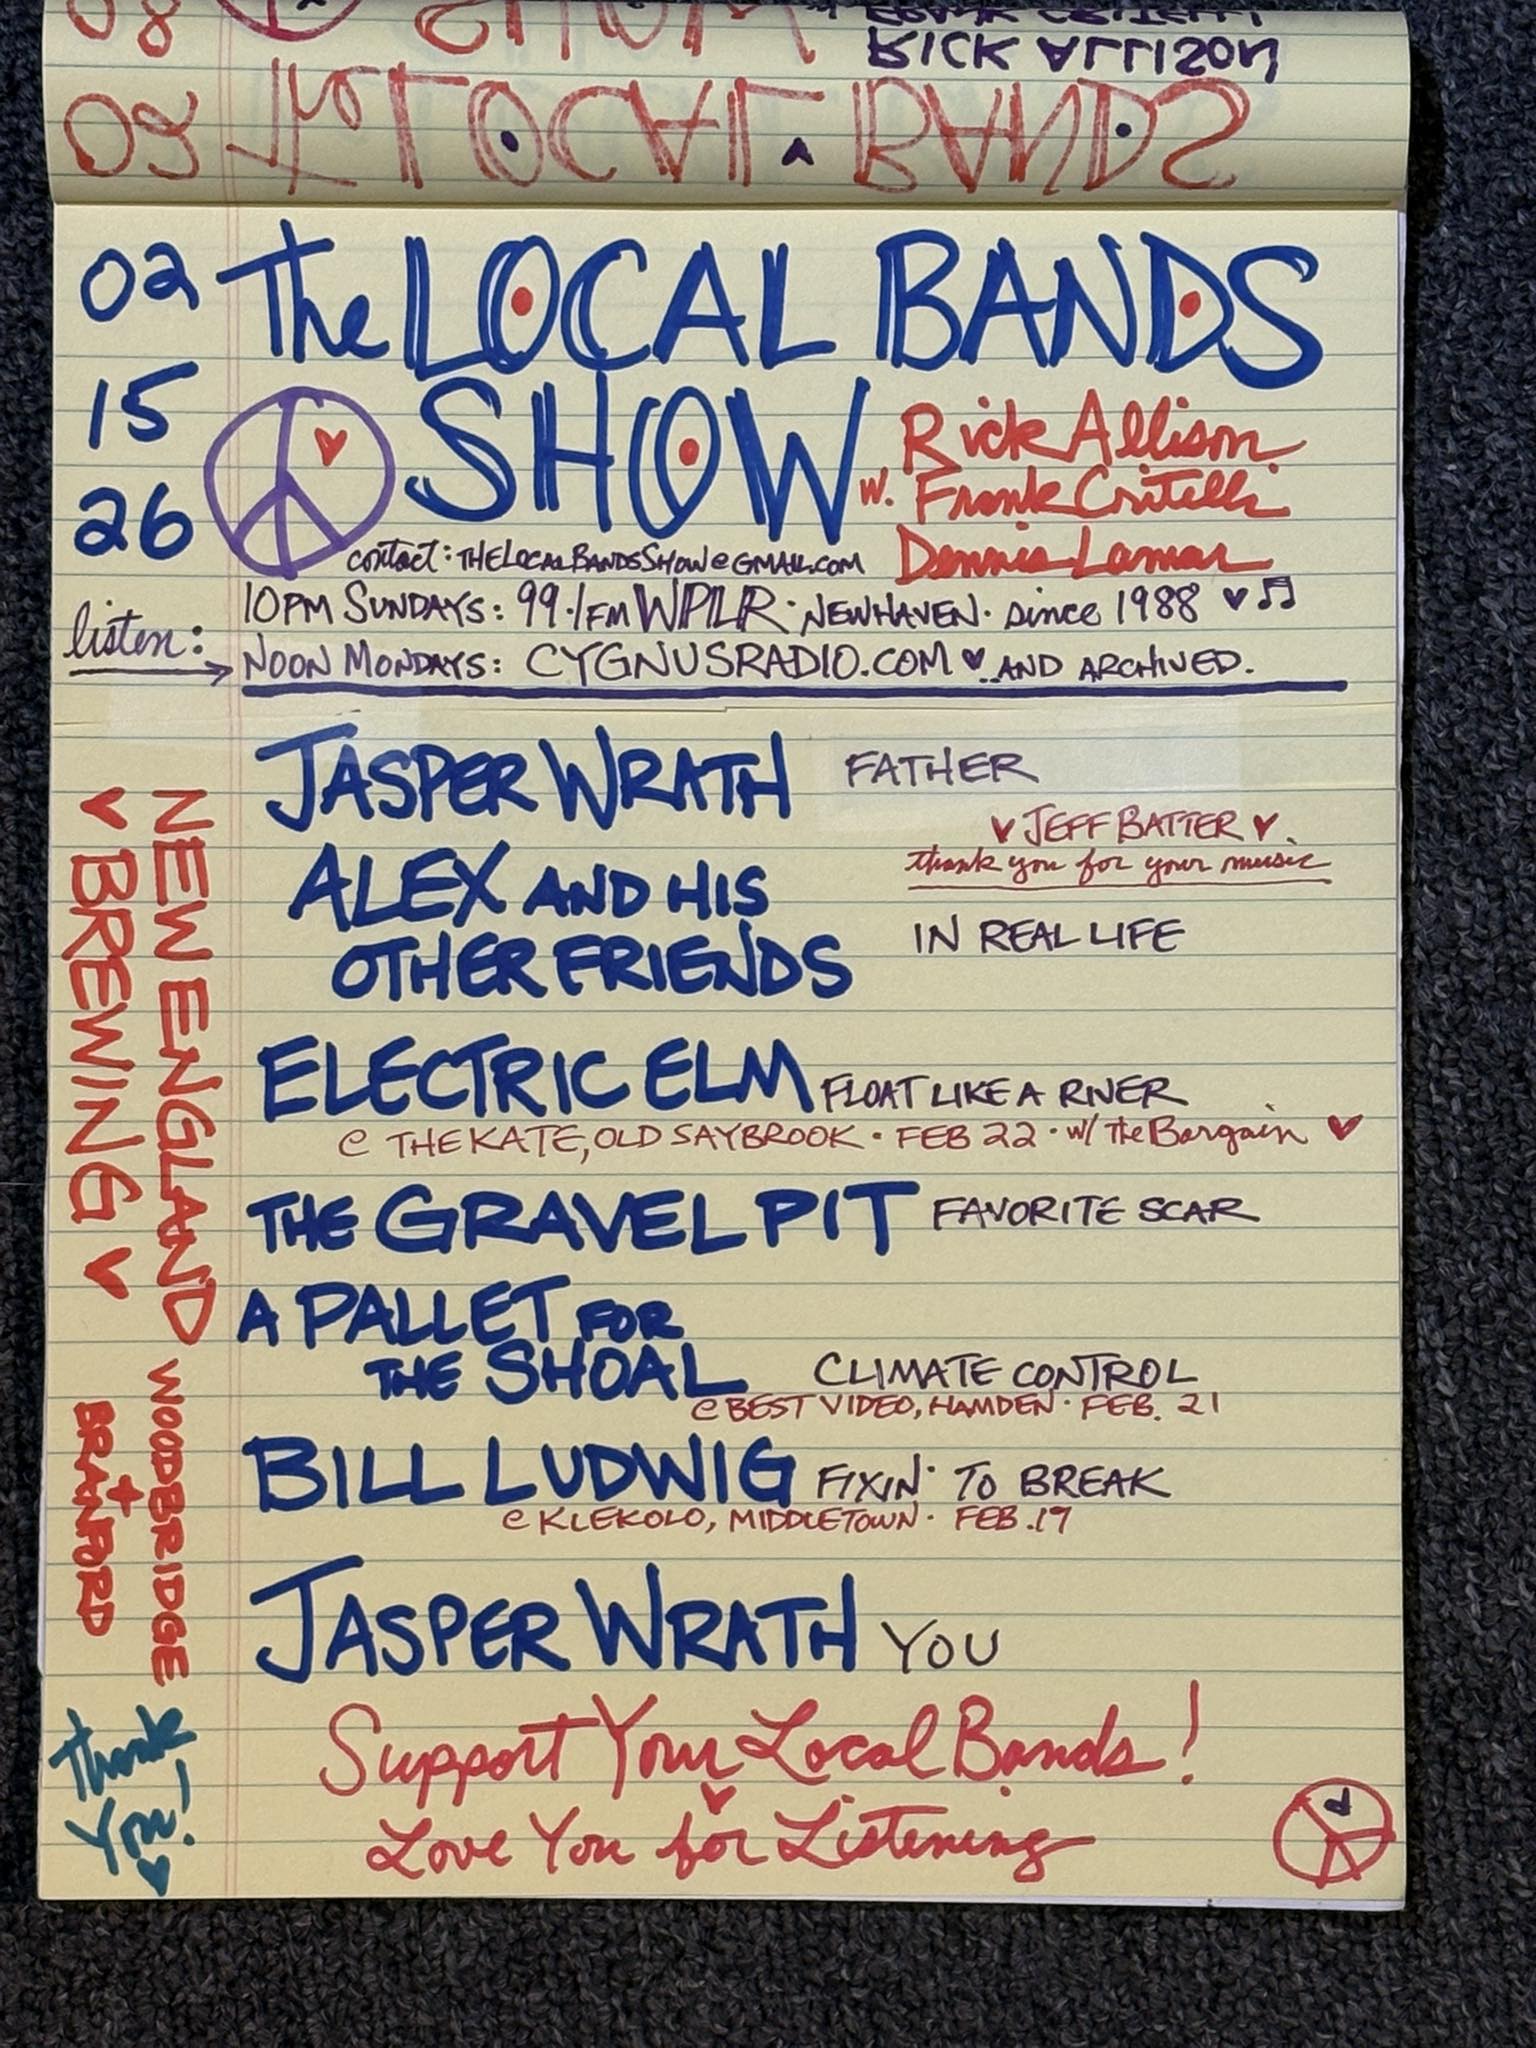 RICK ALLISON
08
LOCAL BANDS
02
The LOCAL BANDS
15
SHOW
Rick Allison
26
w. Frank Critelli
Dennis Lamar
contact: THELOCALBANDSSHOW@GMAIL.COM
listen:
10PM SUNDAYS: 99.1FM WPLR · NEW HAVEN · since 1988 ♥♫
NOON MONDAYS: CYGNUSRADIO.COM ♥ ..AND ARCHIVED.
JASPER WRATH FATHER
♥ JEFF BATTER ♥
thank you for your music
ALEX AND HIS
OTHER FRIENDS
IN REAL LIFE
ELECTRIC ELM FLOAT LIKE A RIVER
@ THE KATE, OLD SAYBROOK · FEB 22 · w/ the Bargain ♥
THE GRAVEL PIT FAVORITE SCAR
A PALLET FOR
THE SHOAL CLIMATE CONTROL
@ BEST VIDEO, HAMDEN · FEB. 21
BILL LUDWIG FIXIN' TO BREAK
@ KLEKOLO, MIDDLETOWN · FEB. 19
JASPER WRATH YOU
Support Your Local Bands!
♥
Love You for Listening
NEW ENGLAND
♥ BREWING ♥
WOODBRIDGE
+
BRANFORD
Thank
You!
♥